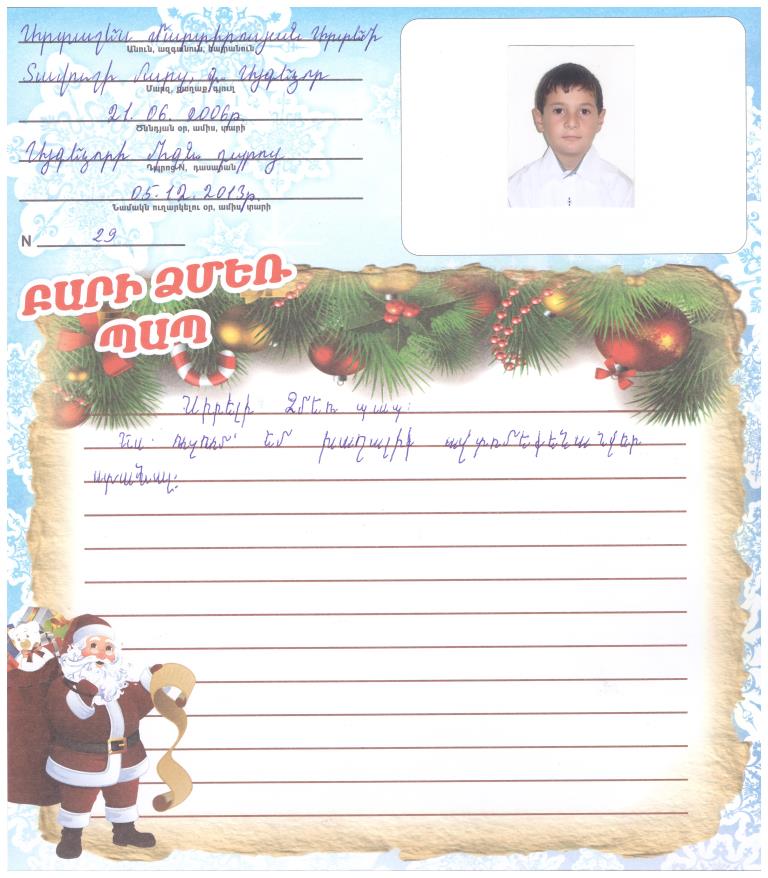 Մարտիրոսյան Արթենի
Անուն, ազգանուն, հայրանուն
Տավուշի մարզ, գ. Այգեձոր
Մարզ, քաղաք/գյուղ
21. 06. 2006թ.
Ծննդյան օր, ամիս, տարի
Այգեձորի միջն. դպրոց
Դպրոց N, դասարան
05.12.2013թ.
Նամակն ուղարկելու օր, ամիս, տարի
N 29
ԲԱՐԻ ՁՄԵՌ
ՊԱՊ
Սիրելի Ձմեռ պապ:
Ես ուզում եմ խաղալիք
ստանալ: